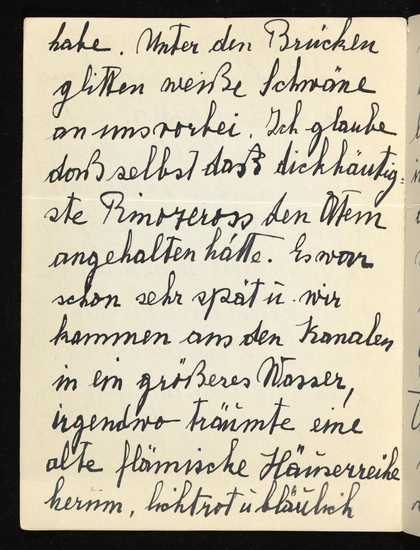 habe. Unter den Brücken
glitten weiße Schwäne
an uns vorbei. Ich glaube
daß selbst daß dickhäutig=
ste Rinozeross den Atem
angehalten hätte. Es war
schon sehr spät u. wir
kammen aus den Kanalen
in ein größeres Wasser,
irgendwo träumte eine
alte flämische Häuserreihe
herum, lichtrot u bläulich